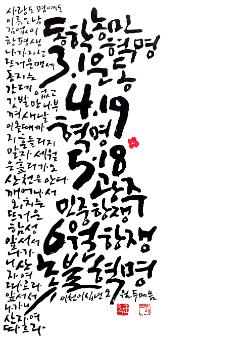 사랑도 명예도
이름도 남
김없이
한평생
나가자던
뜨거운 맹세
동지는
간데 없고
깃발만 나부
껴 새날
이 올때까
지 흔들리지
말자 세월
은 흘러가도
산천은 안다
깨어나서
외치는
뜨거운
함성
앞서서
나가니
산자여
따르라
앞서서
나가니
산자여
따르라
동학농민
혁명
3.1운동
4.19
혁명
5.18
광주
민중항쟁
6월항쟁
촛불혁명
이천이십년